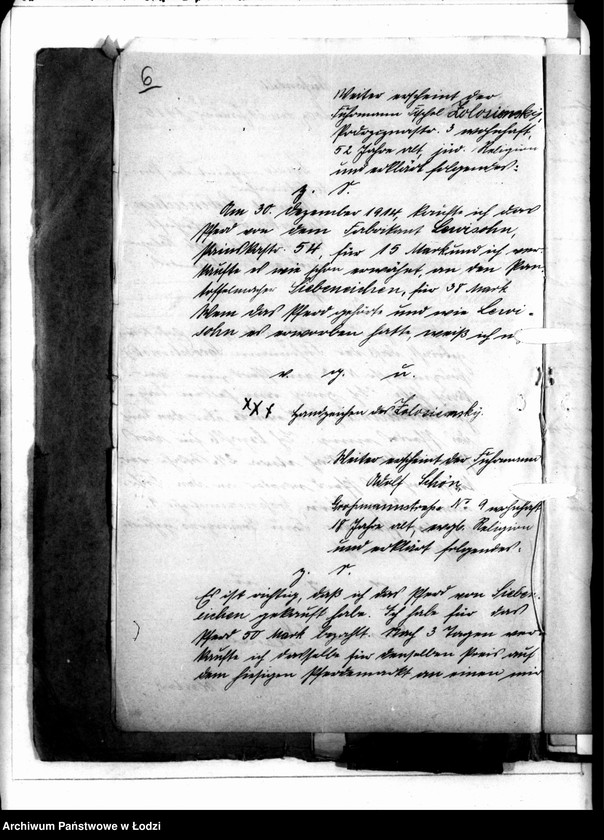 6
Weiter erscheint der
Fuhrmann Josef Zolosienskij,
3 wohnhaft,
52 Jahre alt, jüd. Religion
und erklärt folgendes:
z. S.
Am 30. Dezember 1914 kaufte ich das
Pferd von dem Fabrikant Lewisohn,
54, für 15 Mark und ich ver-
kaufte es wie schon erwähnt, an den Pan-
toffelmacher Siebeneichen, für 38 Mark
Wem das Pferd gehörte und wie Lewi-
sohn es erworben hatte, weiß ich n
v. g. u.
xxx Handzeichen des Zolosienskij.
Weiter erscheint der Fuhrmann
Adolf Schön,
Großmannstraße No 9 wohnhaft
18 Jahre alt, evgl. Religion
und erklärt folgendes:
z. S.
Es ist richtig, daß ich das Pferd von Sieben-
eichen gekauft habe. Ich habe für das
Pferd 50 Mark bezahlt. Nach 3 Tagen ver-
kaufte ich dasselbe für denselben Preis auf
dem hiesigen Pferdemarkt an einen mir
Archiwum Państwowe w Łodzi